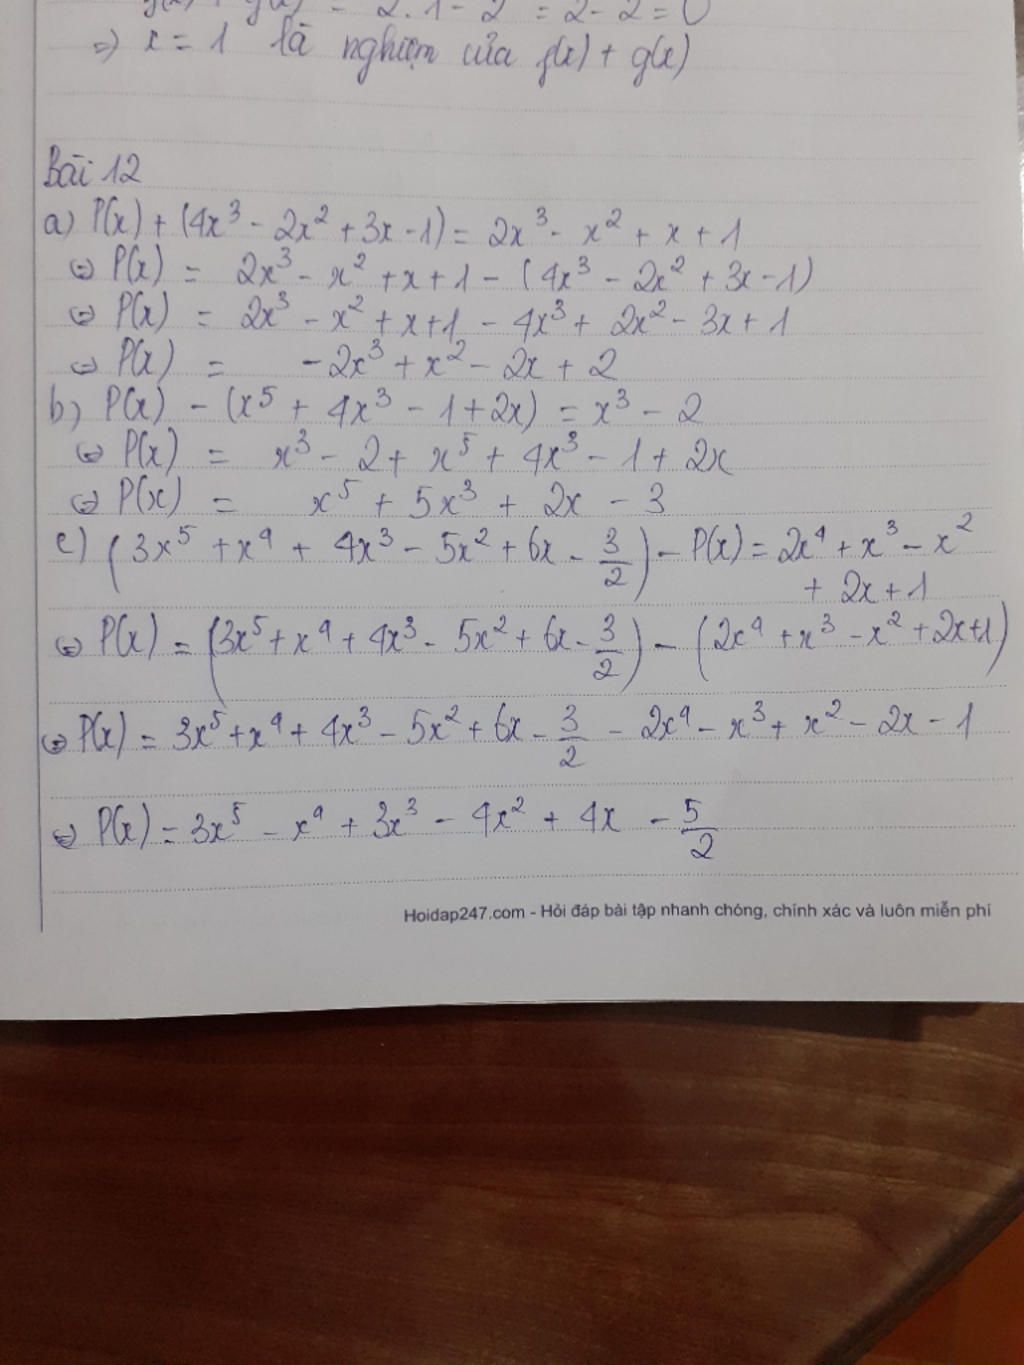 g(x) = 2.1 - 2 = 2 - 2 = 0
=> x = 1 là nghiệm của f(x) + g(x)
Bài 12
a) P(x) + (4x³ - 2x² + 3x - 1) = 2x³ - x² + x + 1
<=> P(x) = 2x³ - x² + x + 1 - (4x³ - 2x² + 3x - 1)
<=> P(x) = 2x³ - x² + x + 1 - 4x³ + 2x² - 3x + 1
<=> P(x) = -2x³ + x² - 2x + 2
b) P(x) - (x⁵ + 4x³ - 1 + 2x) = x³ - 2
<=> P(x) = x³ - 2 + x⁵ + 4x³ - 1 + 2x
<=> P(x) = x⁵ + 5x³ + 2x - 3
c) (3x⁵ + x⁴ + 4x³ - 5x² + 6x - 3/2) - P(x) = 2x⁴ + x³ - x²
+ 2x + 1
<=> P(x) = (3x⁵ + x⁴ + 4x³ - 5x² + 6x - 3/2) - (2x⁴ + x³ - x² + 2x + 1)
<=> P(x) = 3x⁵ + x⁴ + 4x³ - 5x² + 6x - 3/2 - 2x⁴ - x³ + x² - 2x - 1
<=> P(x) = 3x⁵ - x⁴ + 3x³ - 4x² + 4x - 5/2
Hoidap247.com - Hỏi đáp bài tập nhanh chóng, chính xác và luôn miễn phí